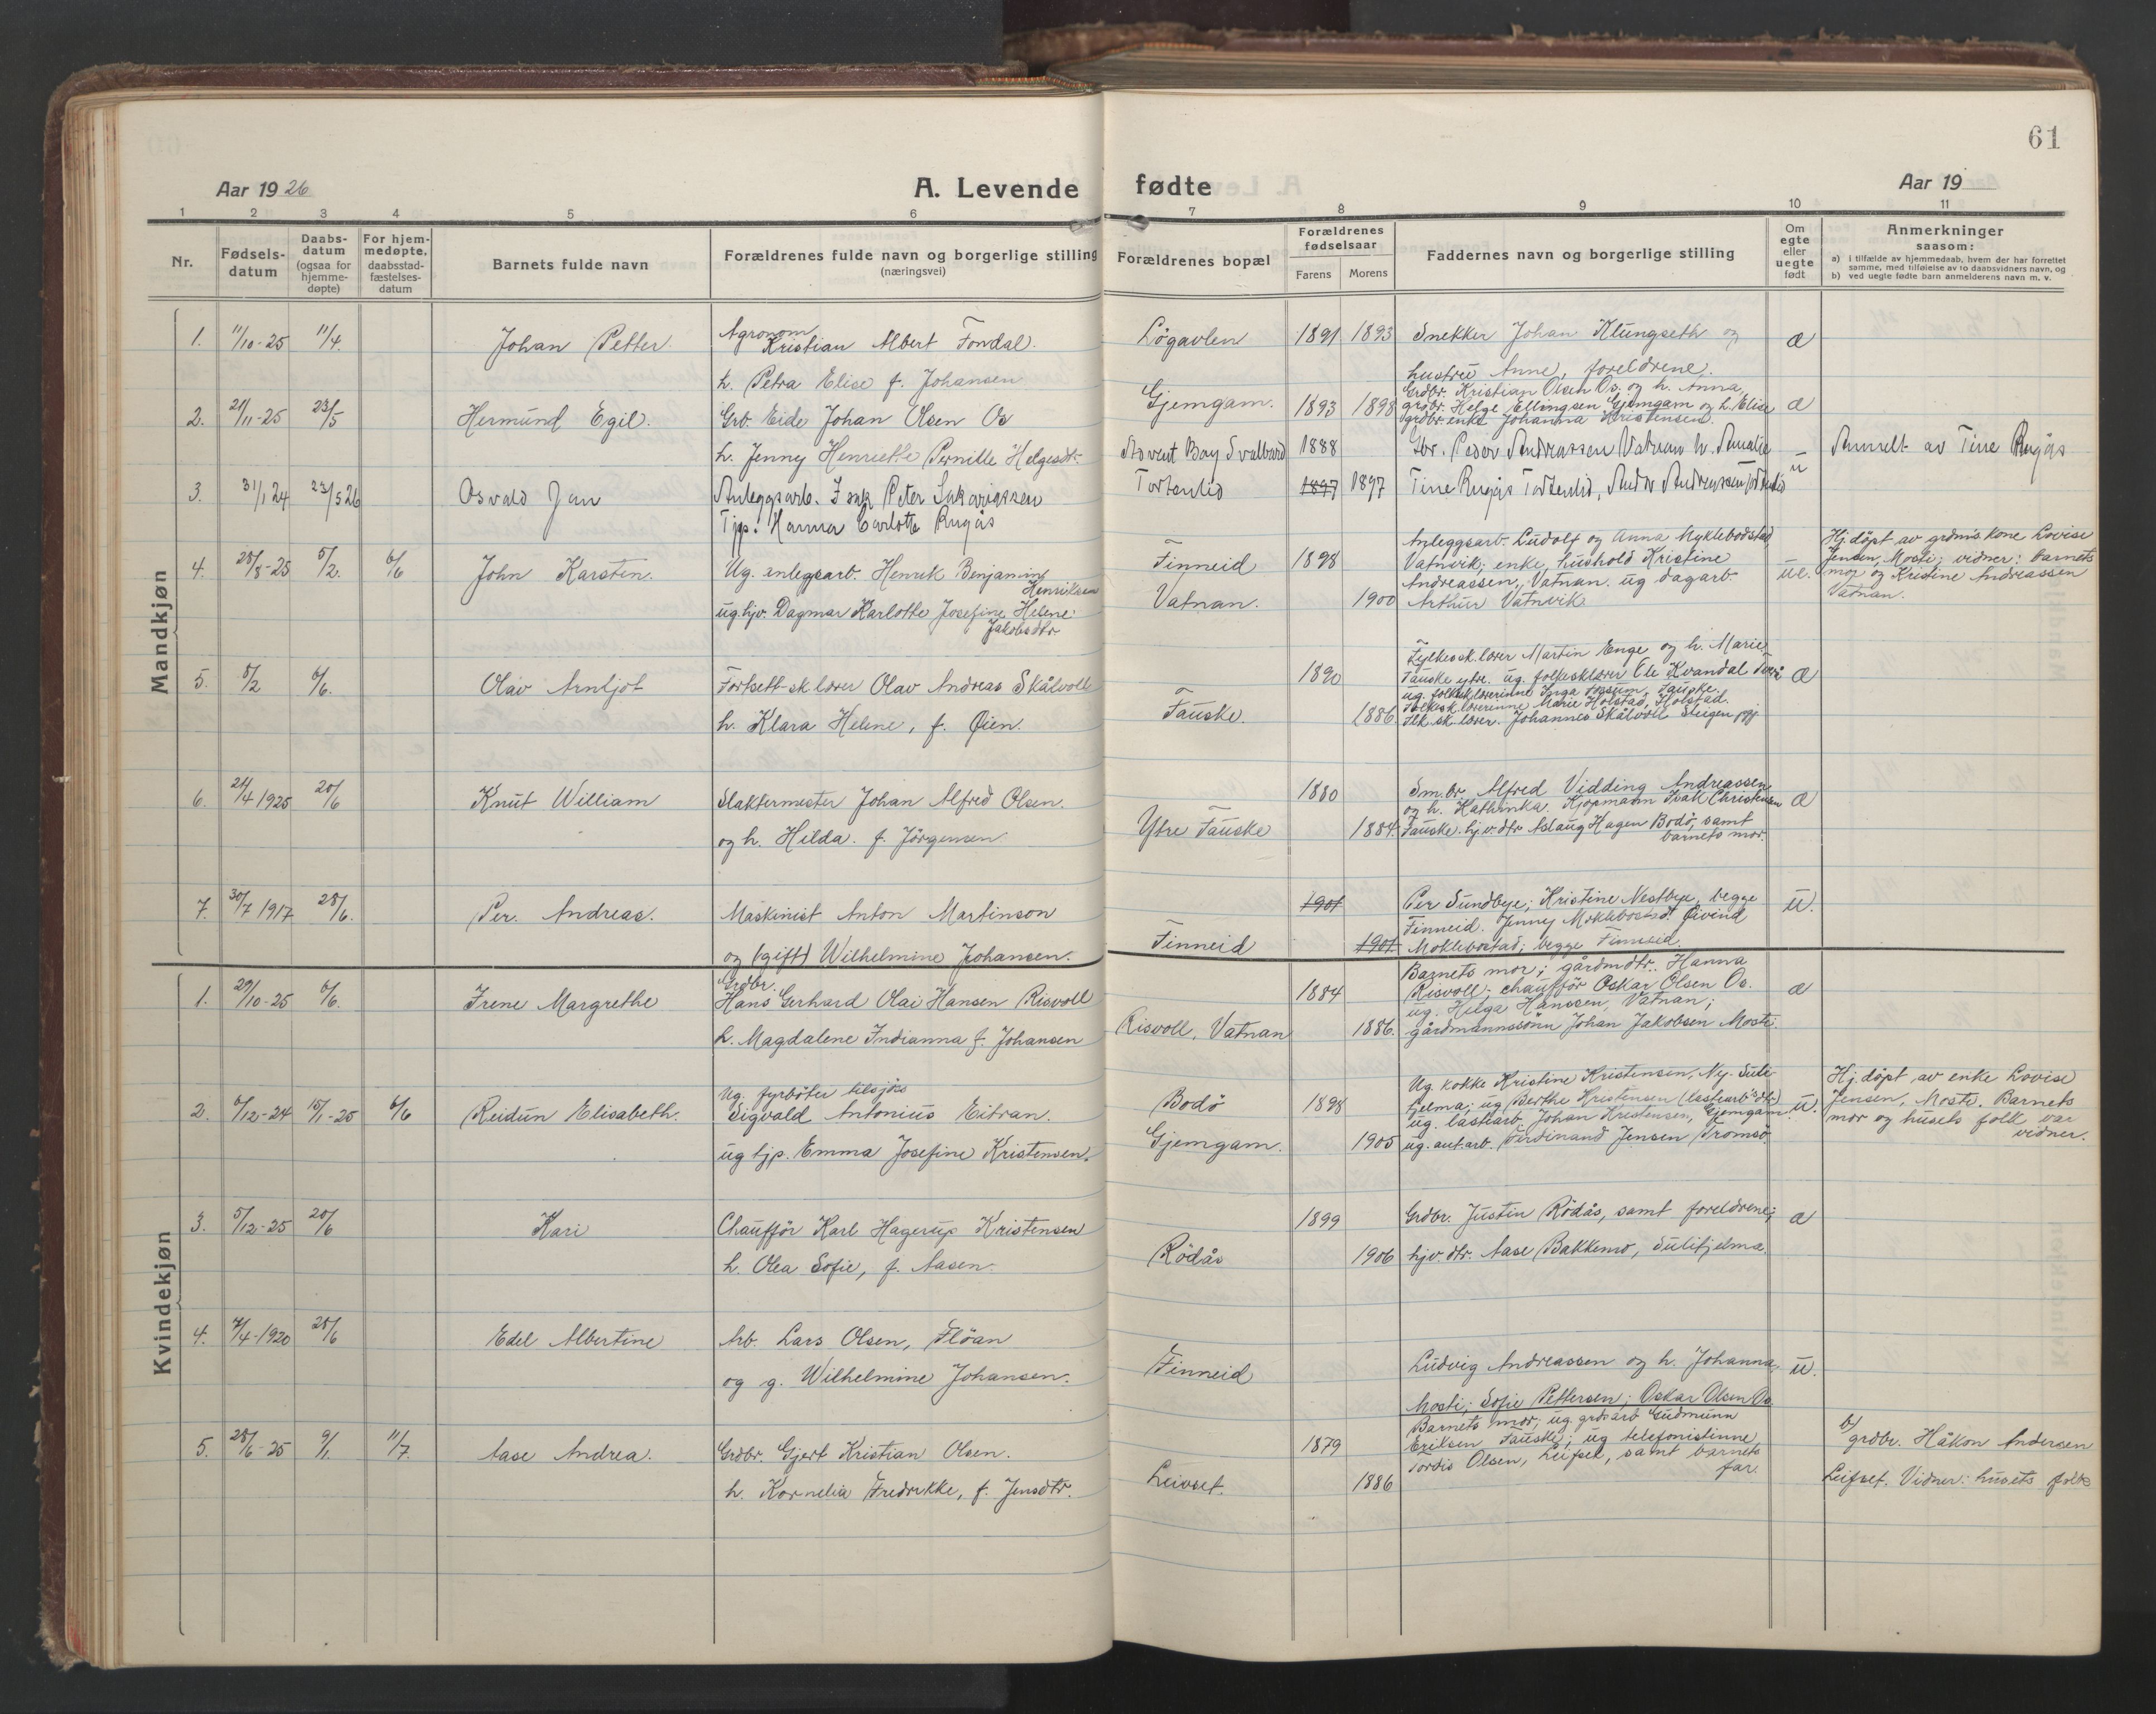 61
Aar 1926
A. Levende fødte
Aar 19
1 2 3 4 5 6 7 8 9 10 11
Nr.
Fødsels-
datum
Daabs-
datum
(ogsaa for
hjemme-
døpte)
For hjem-
medøpte,
daabsstad-
fæstelses-
datum
Barnets fulde navn
Forældrenes fulde navn og borgerlige stilling
(næringsvei)
Forældrenes bopæl
Forældrenes
fødselsaar
Farens Morens
Faddernes navn og borgerlige stilling
Om
egte
eller
uegte
født
Anmerkninger
saasom:
a) i tilfælde av hjemmedaab, hvem der har forrettet
samme, med tilføielse av to daabsvidners navn, og
b) ved uegte fødte barn anmelderens navn m. v.
Mandkjøn
1. 11/10-25 11/4. Johan Petter
Agronom
Kristian Albert Fondal.
h. Petra Elise f. Johansen
Løgavlen 1891 1893
Snekker Johan Klungseth og
hustru Anne, foreldrene.
a
2. 21/11-25 23/5 Hermund Egil.
Grb. Eide Johan Olsen Os
h. Jenny Henriette Pernille Helgesdtr.
Gjemgam. 1893 1898
Grdbr. Kristian Olsen Os. og h. Anna,
grdbr. Helge Ellingsen Gjemgam og h. Elise
grdbr. enke Johanna Kristensen.
a
3. 31/1 24 23/5 26 Osvald Jan
Anleggsarb. Isak Peter Sakariassen
Tjp. Hanna Carlotte Rugås
Advent Bay Svalbard 1888
Tortenlid 1897 1897
Gbr. Peder Andreassen Vatnan h. Amalie
Tine Rugås Tortenlid, Andor Andreassen Tortenlid
u
Anmelt av Tine Rugås
4. 28/8-25 5/2. 6/6 John Karsten.
Ug. anlegsarb. Henrik Benjamin
Henriksen
ug. hjv. Dagmar Karlotte Josefine Helene
Jakobsdtr
Finneid 1898
Vatnan. 1900
Anleggsarb. Ludolf og Anna Myklebostad,
Vatnvik, enke, hushold Kristine
Andreassen, Vatnan. ug dagarb.
Arthur Vatnvik
ue.
Hj.døpt av grdms. kone Lovise
Jensen, Mosti; vidner: barnets
mor og Kristine Andreassen
Vatnan.
5. 8/2 6/6. Olav Arnljot
Fortsett-sk.lærer Olav Andreas Skålvoll
h. Klara Helene, f. Øien.
Fauske. 1890 1886
Fylkessk.lærer Martin Enge og h. Marie,
Fauske ytre. ug. folkesklærer Ole Kvandal
ug. folkesklærerinne Inga Fossum, Fauske.
Folkesk.lærerinne Marie Holstad, Holstad.
Flk.sk.lærer. Johannes Skålvoll Steigen
a
6. 24/4 1925 20/6 Knut William
Slaktermester Johan Alfred Olsen.
og h. Hilda. f. Jørgensen.
Ytre Fauske 1880 1884
Sm.br. Alfred Vidding Andreassen
og h. Kathinka. Kjøpmann Isak Christensen
Fauske. hjv. dtr Aslaug Hagen Bodø, samt
barnets mor.
a
7. 30/7 1917 28/6. Per. Andreas.
Maskinist Anton Martinson
og (gift) Wilhelmine Johansen.
Finneid 1901 1901
Per Sundbye; Kristine Nestbye, begge
Finneid. Jenny Moklebostad. Øivind
Moklebostad; begge Finneid.
u.
Kvindekjøn
1. 29/10-25 6/6. Irene Margrethe
Grdbr.
Hans Gerhard Olai Hansen Risvoll
h. Magdalene Indianna f. Johansen
Risvoll, Vatnan 1884 1886.
Barnets mor; gårdmdtr. Hanna
Risvoll; chauffør Oskar Olsen Os.
ug. Helga Hanssen, Vatnan;
gårdmannssønn Johan Jakobsen Mosti.
a
2. 6/12-24 15/1-25 6/6 Reidun Elisabeth.
Ug. fyrbøter tilsjøs
Sigvald Antonius Eitran.
ug tjp. Emma Josefine Kristensen.
Bodø 1898
Gjemgam. 1905
Ug. kokke Kristine Kristensen, Ny-Suli-
tjelma; ug Berthe Kristensen (lastearb dtr)
ug. lastearb. Johan Kristensen, Gjemgam
ug. aut.arb. Ferdinand Jensen Tromsø
u.
Hj.døpt av enke Lovise
Jensen, Mosti. Barnets
mor og husets folk var
vidner.
3. 5/12-25 20/6 Kari
Chauffør Karl Hagerup Kristensen
h. Olea Sofie, f. Aasen.
Rødås 1899 1906
Grdbr. Justin Rødås, samt foreldrene;
hjv. dtr. Aase Bakkemo, Sulitjelma.
a
4. 7/4-1920 28/6 Edel Albertine
Arb. Lars Olsen, Fløan
og g. Wilhelmine Johansen.
Finneid
Ludvig Andreassen og h. Johanna,
Mosti; Sofie Pettersen; Oskar Olsen Os.
u.
5. 28/6-25 9/1. 11/7. Aase Andrea.
Grdbr. Gjert Kristian Olsen.
h. Kornelia Fredrikke, f. Jensdtr.
Leivset. 1879 1886
Barnets mor; ug. grdsarb Gudmunn
Eriksen Fauske; ug telefonistinne
Tordis Olsen, Leifset, samt barnets
far.
b/
grdbr. Håkon Andersen
Leifset. Vidner: husets folk